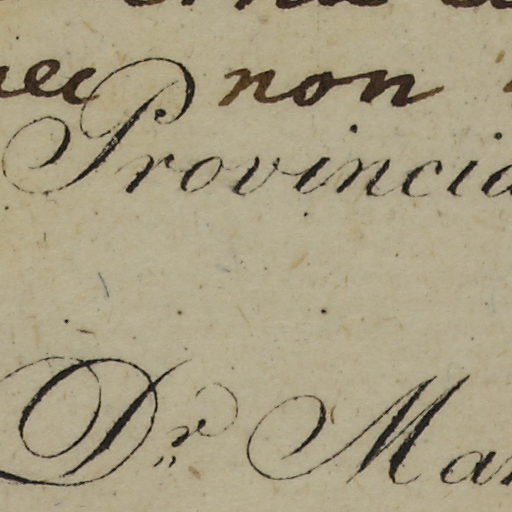 nec non
Provincia
Dr Mar